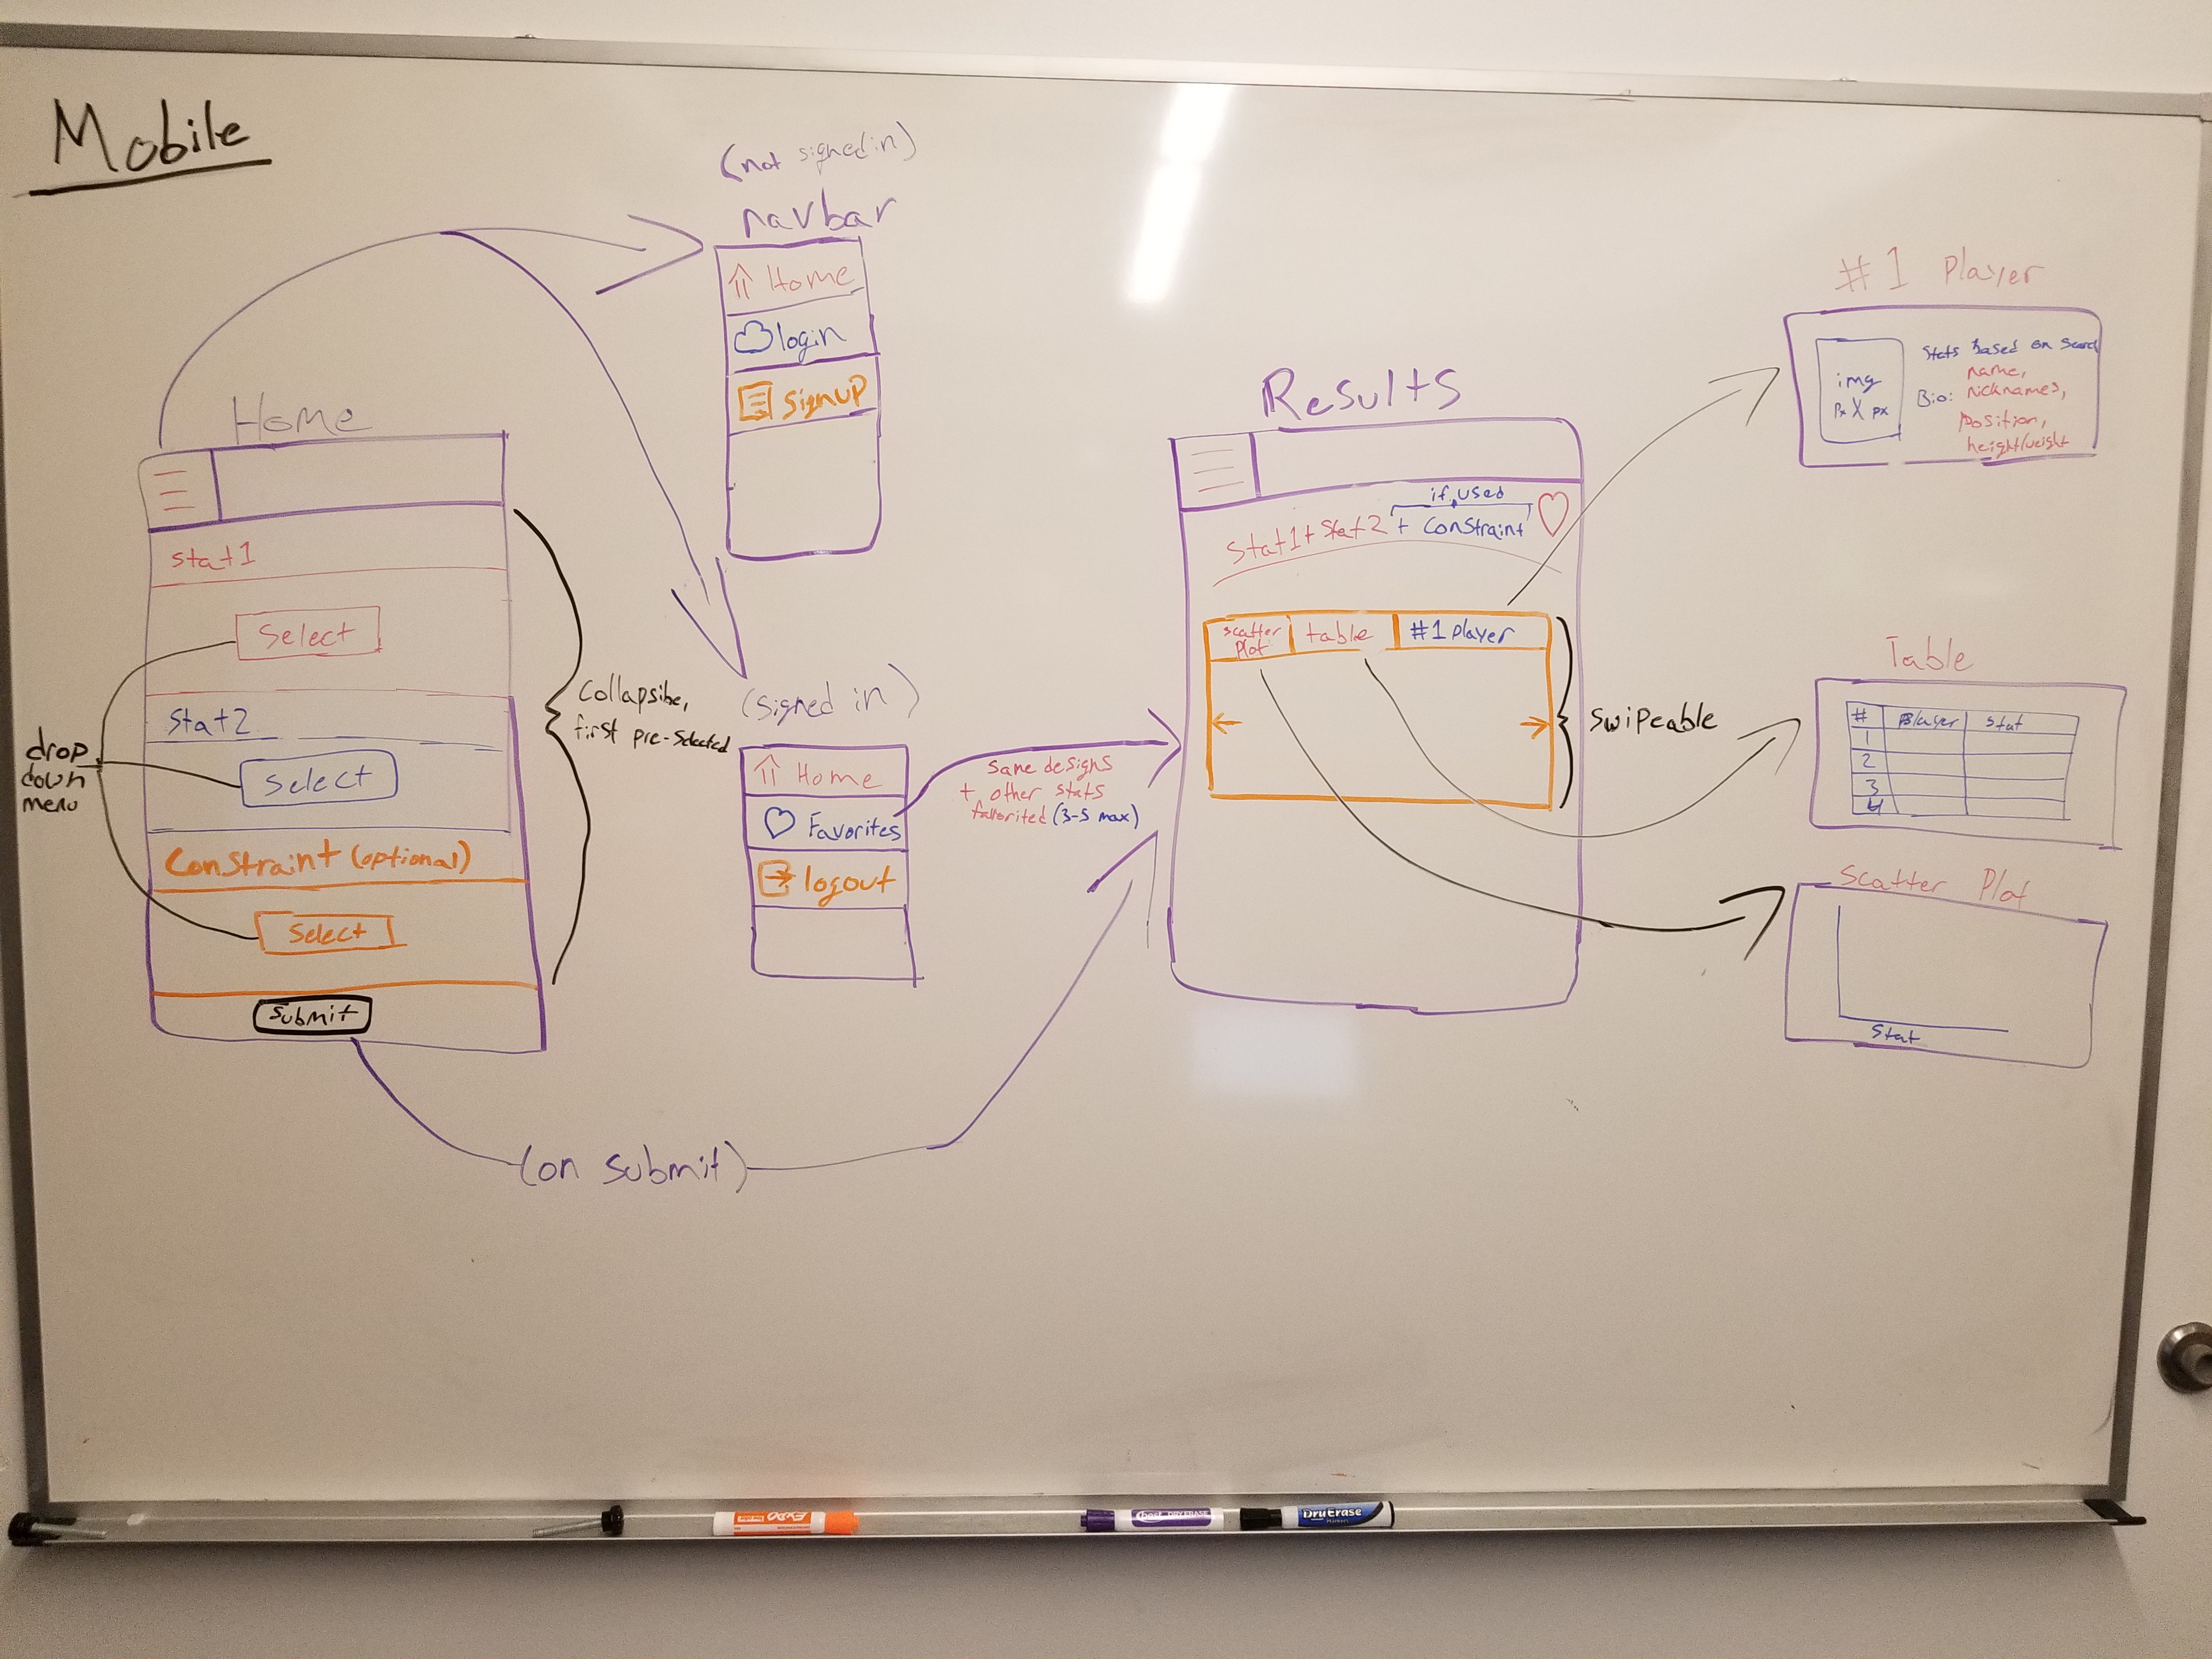 Mobile
(not signed in)
navbar
Home
login
signup
Home
stat1
Select
Stat2
Select
Constraint (optional)
Select
Submit
drop
down
menu
Collapsibe,
first pre-selected
(signed in)
Home
Favorites
logout
same designs
+ other stats
favorited (3-5 max)
(on submit)
Results
if used
Stat1 + Stat2 + Constraint
scatter
plot
table
#1 player
swipeable
#1 Player
img
px X px
Stats based on search
name,
Bio: nicknames,
position,
height/weight
Table
# Player stat
1
2
3
4
Scatter Plot
Stat
EXPO
DryErase
Markers